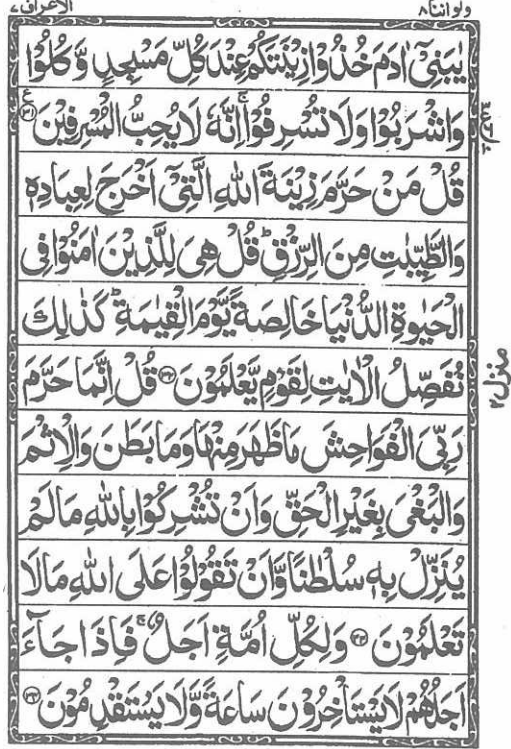 ولو اننا ٨
الاعراف ٧
يٰبَنِيْۤ اٰدَمَ خُذُوْا زِيْنَتَكُمْ عِنْدَ كُلِّ مَسْجِدٍ وَّكُلُوْا
وَاشْرَبُوْا وَلَا تُسْرِفُوْا ۚ اِنَّهٗ لَا يُحِبُّ الْمُسْرِفِيْنَ ۝٣١ ع
قُلْ مَنْ حَرَّمَ زِيْنَةَ اللّٰهِ الَّتِيْۤ اَخْرَجَ لِعِبَادِهٖ
وَالطَّيِّبٰتِ مِنَ الرِّزْقِ ؕ قُلْ هِىَ لِلَّذِيْنَ اٰمَنُوْا فِى
الْحَيٰوةِ الدُّنْيَا خَالِصَةً يَّوْمَ الْقِيٰمَةِ ؕ كَذٰلِكَ
نُفَصِّلُ الْاٰيٰتِ لِقَوْمٍ يَّعْلَمُوْنَ ۝٣٢ قُلْ اِنَّمَا حَرَّمَ
رَبِّىَ الْفَوَاحِشَ مَا ظَهَرَ مِنْهَا وَمَا بَطَنَ وَالْاِثْمَ
وَالْبَغْىَ بِغَيْرِ الْحَقِّ وَاَنْ تُشْرِكُوْا بِاللّٰهِ مَا لَمْ
يُنَزِّلْ بِهٖ سُلْطٰنًا وَّاَنْ تَقُوْلُوْا عَلَى اللّٰهِ مَا لَا
تَعْلَمُوْنَ ۝٣٣ وَلِكُلِّ اُمَّةٍ اَجَلٌ ۚ فَاِذَا جَآءَ
اَجَلُهُمْ لَا يَسْتَاْخِرُوْنَ سَاعَةً وَّلَا يَسْتَقْدِمُوْنَ ۝٣٤
منزل ٢